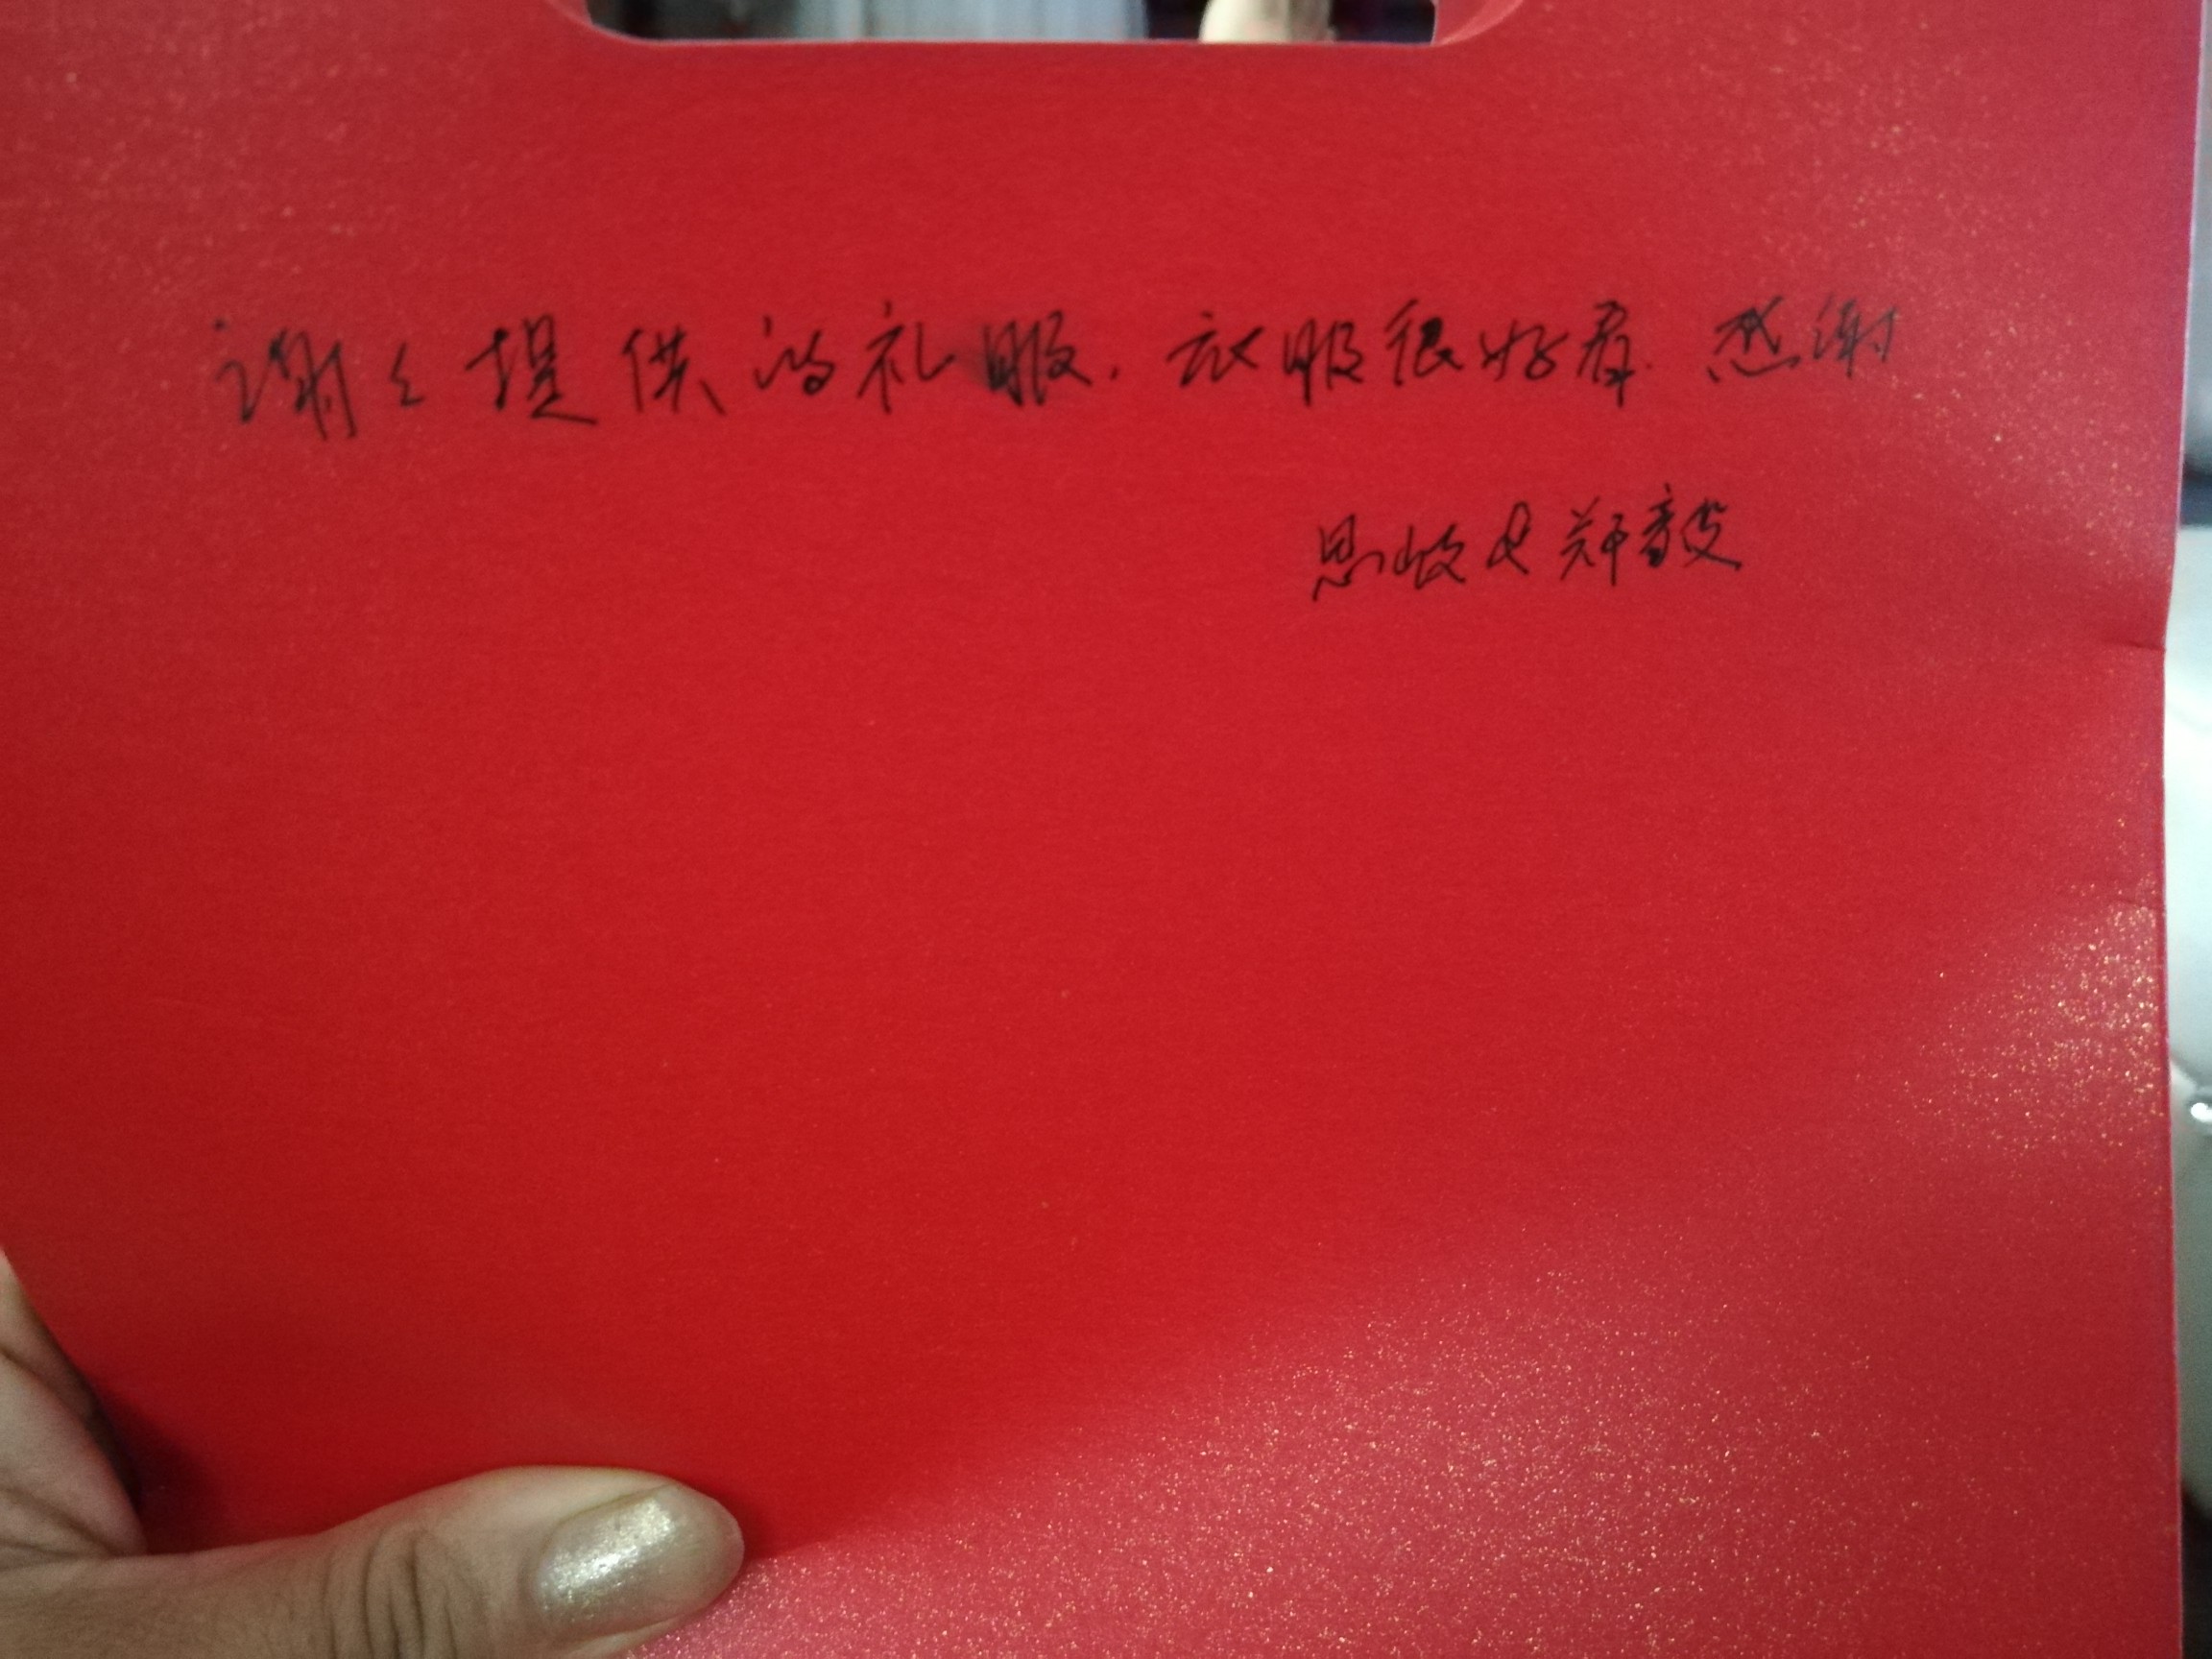 谢々提供的礼服.衣服很好看.感谢
思岐&郑毅